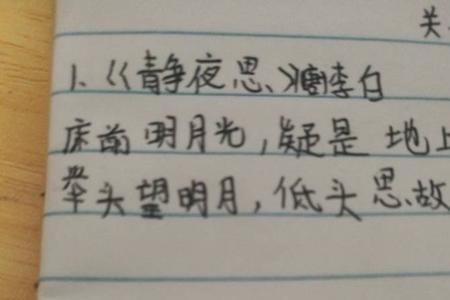 关
1.《静夜思》唐李白
床前明月光,疑是地上
举头望明月,低头思故